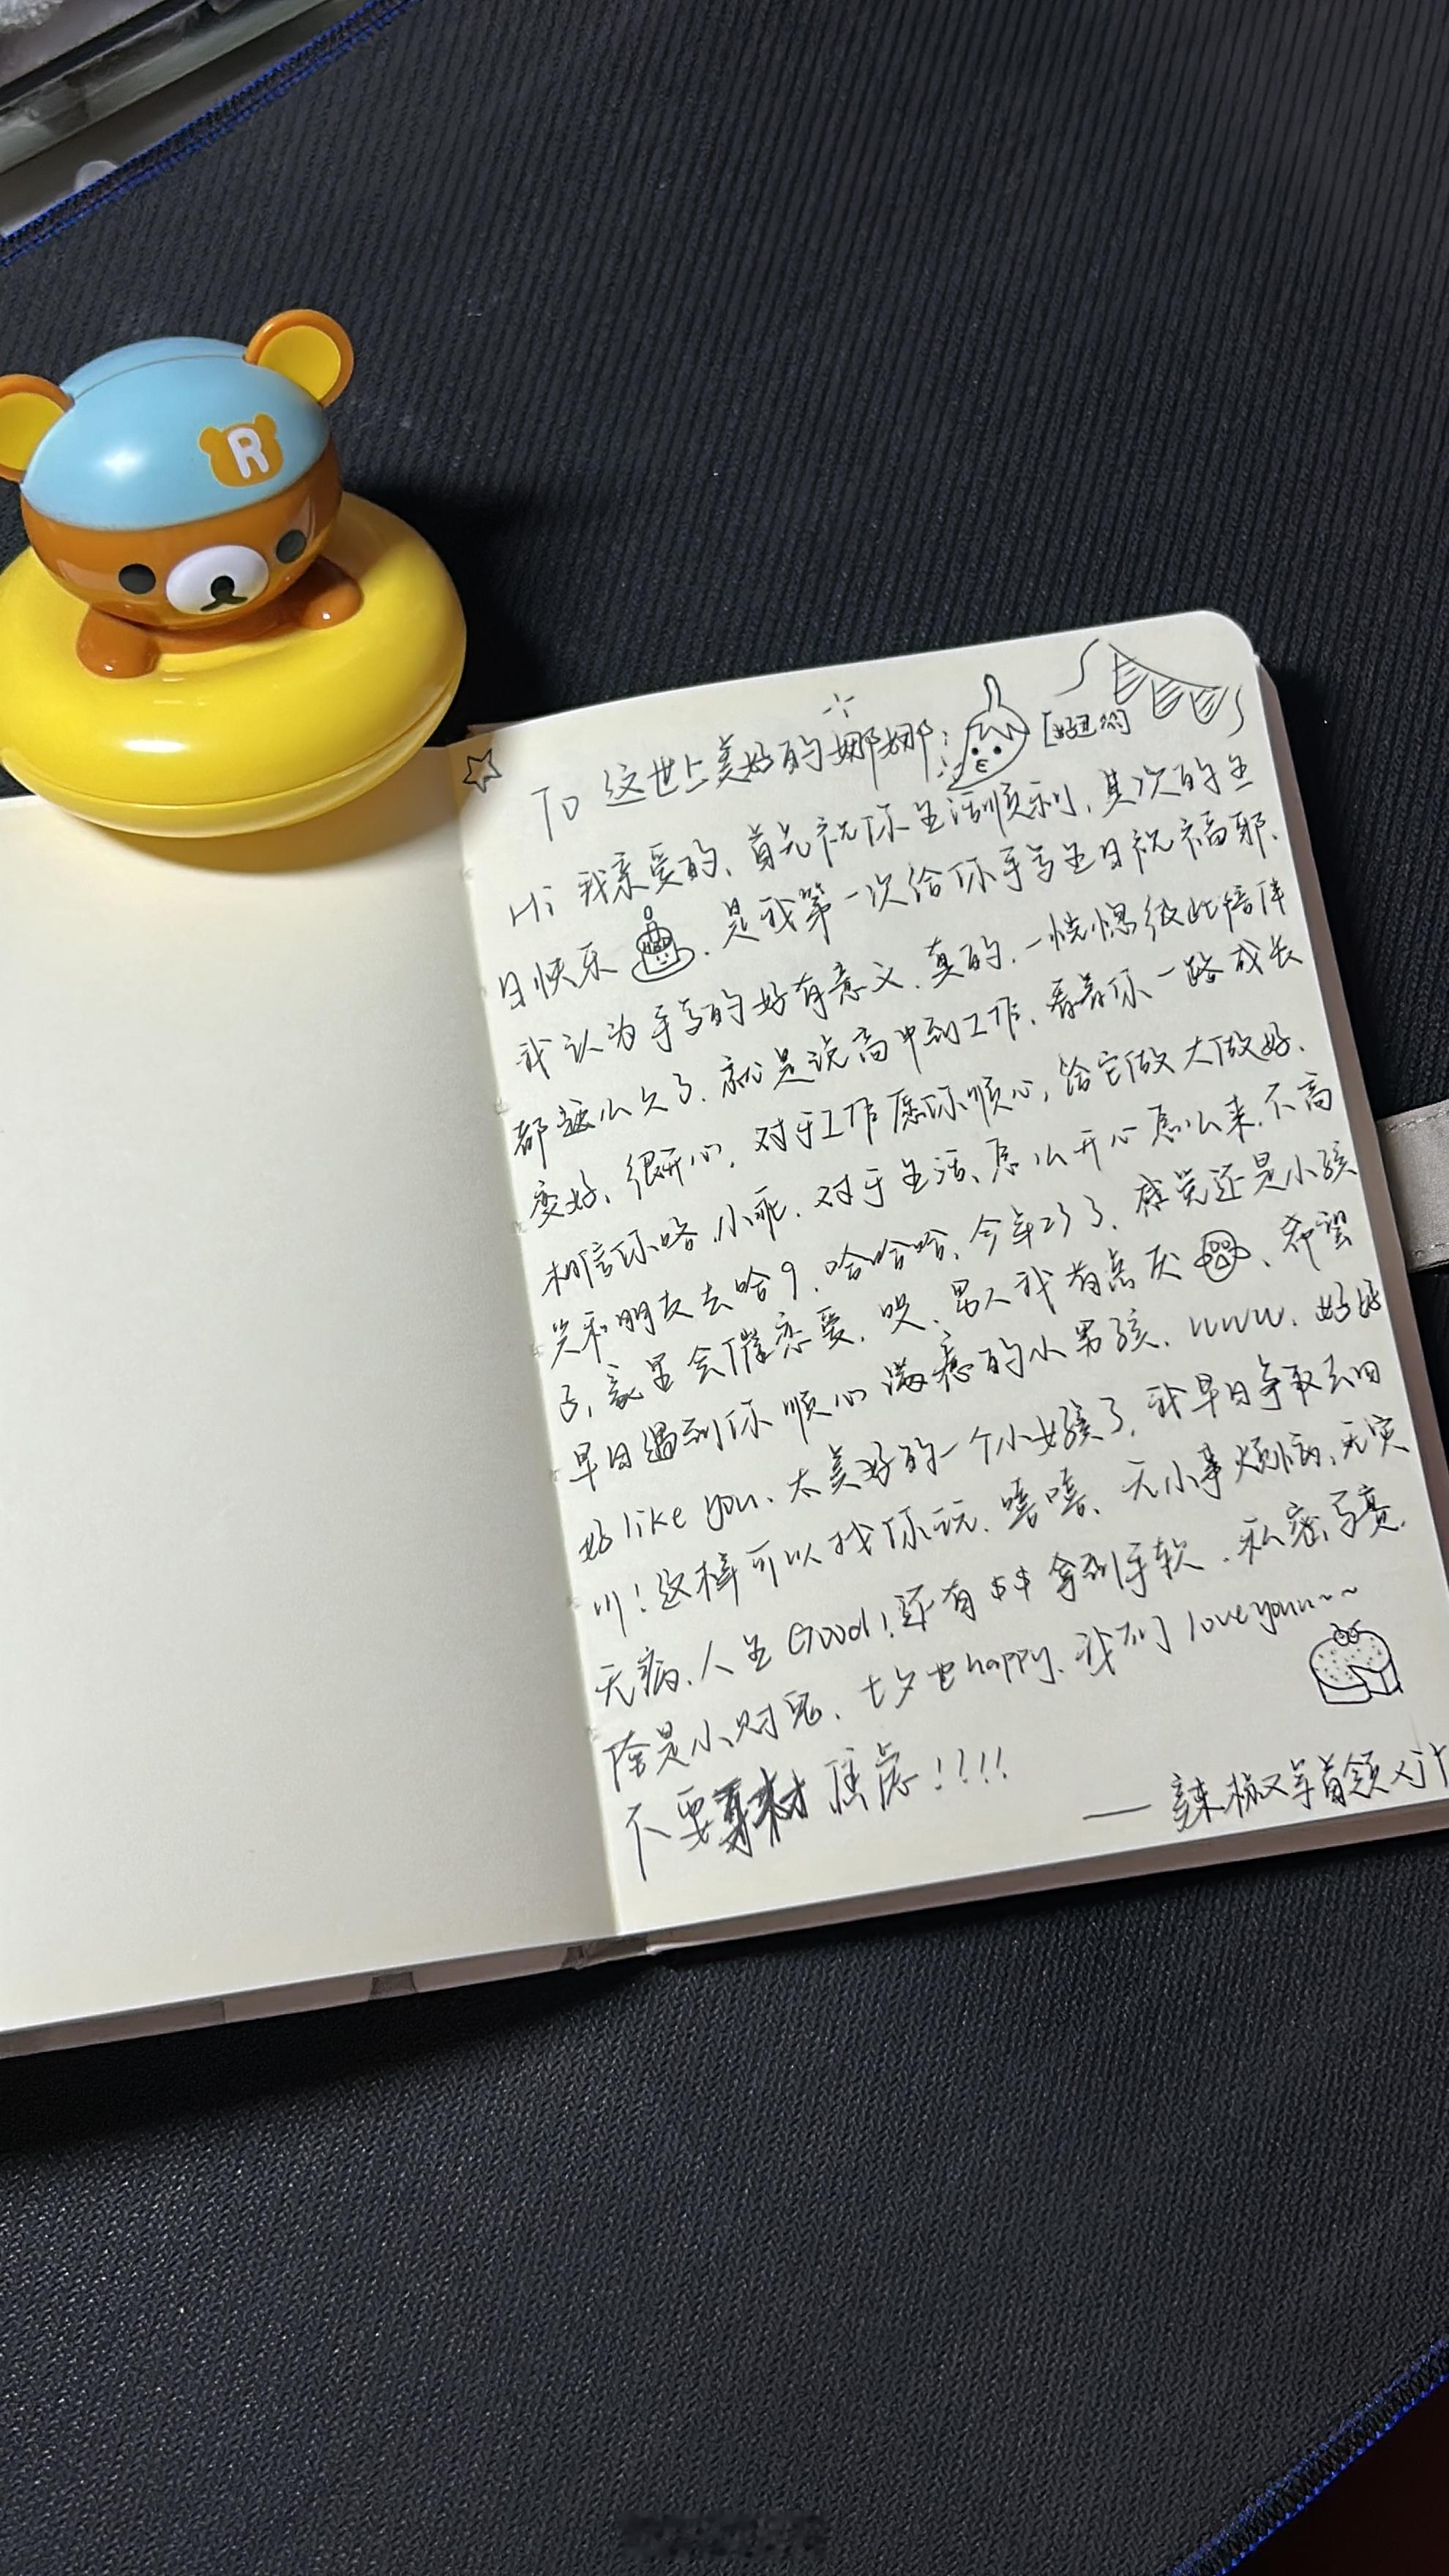 R
To 这世上美好的娜娜:
Hi 我亲爱的、首先祝你生活顺利、其次的生
日快乐 、是我第一次给你手写生日祝福耶、
我认为手写的好有意义、真的、一恍惚彼此陪伴
都这么久了、就是说高中到工作、看着你一路成长
变好、很开心、对于工作愿你顺心,给它做大做好、
相信你咯、小乖、对于生活、怎么开心怎么来、不高
兴和朋友去哈9、哈哈哈、今年23了、感觉还是小孩
子、家里会催恋爱、哎、男人我有点厌 、希望
早日遇到你顺心满意的小男孩、www、好好
好 like you、太美好的一个小女孩了、我早日争取去四
川!这样可以找你玩、嘻嘻、无小事烦恼、无灾
无病、人生Good!还有$$拿到手软、私密写真
除是小财宝、七夕也happy、我们 love youu~~
不要 焦虑!!!!